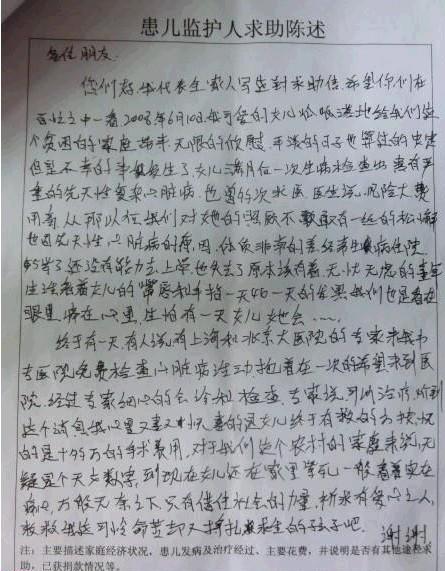 患儿监护人求助陈述
各位朋友:
您们好,我代表全家人写这封求助信,希望你们在
百忙之中一看2008年6月10日,我可爱的女儿
个贫困的家庭带来无限的欣慰,平淡的日子也算过的
但是不幸的事发生了,女儿满月后一次生病检查出患有严
重的先天性复杂心脏病,也曾多次求医,医生说,风险大费
用高,从那以后我们对她的照顾不敢有一丝的松懈
也因先天性心脏病的原因,体质非常的差经常生病住院
岁了还没有能力去上学,也失去了原本该有着无忧无虑的童年
生活看着女儿的嘴唇和手指一天一天的发黑,我们也是看在
眼里,疼在心里,生怕有一天女儿她会……
终于有一天,有人说有上海和北京大医院的专家来我市
医院免费检查心脏病活动抱着在一次的希望来到医
院,经过专家细心的会诊和检查,专家说可以治疗,听到
这个消息,我心里又喜又忧,喜的是女儿终于有救的方
的是十万的手术费用,对于我们这个农村的家庭来说,无
疑是个天文数字,到现在女儿还在家里
万般无奈之下,只有借住社会的力量,祈求有爱心之人,
救救我这可怜命苦却又挣扎求生的孩子吧。
谢谢
注:主要描述家庭经济状况,患儿发病及治疗经过、主要花费,并说明是否有其他途径求
助,已获捐款情况等。